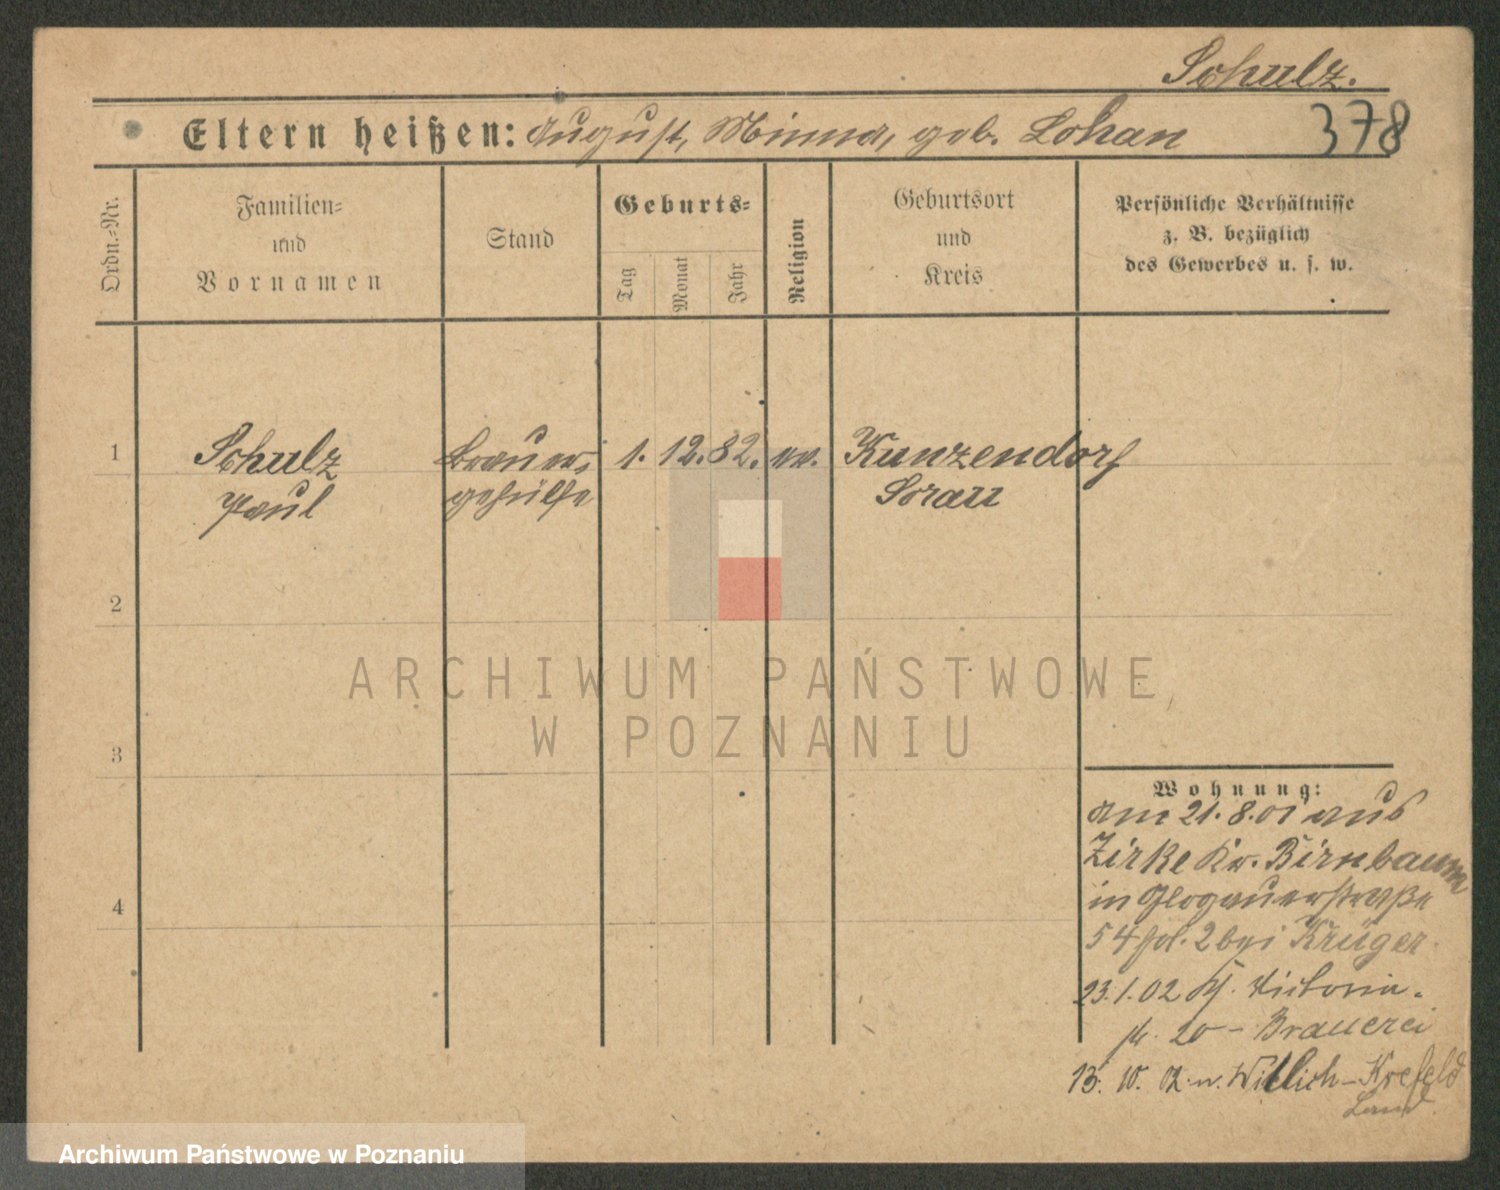 Schulz.
Eltern heißen: August, Minna, geb. Lohan 378
Ordn.-Nr.
Familien-
und
Vornamen
Stand
Geburts-
Tag
Monat
Jahr
Religion
Geburtsort
und
Kreis
Persönliche Verhältnisse
z. B. bezüglich
des Gewerbes u. s. w.
1 Schulz Brauer- 1. 12. 82. ev. Kunzendorf
Paul gehülfe Sorau
2
3
4
ARCHIWUM PAŃSTWOWE
W POZNANIU
Wohnung:
am 21. 8. 01 aus
Zirke Kr. Birnbaum
in Glogauerstraße
54 2 bei Krüger.
23. 1. 02 Victoria-
str. 20 - Brauerei
13. 10. 02. n. Willich-Krefeld
Land.
Archiwum Państwowe w Poznaniu